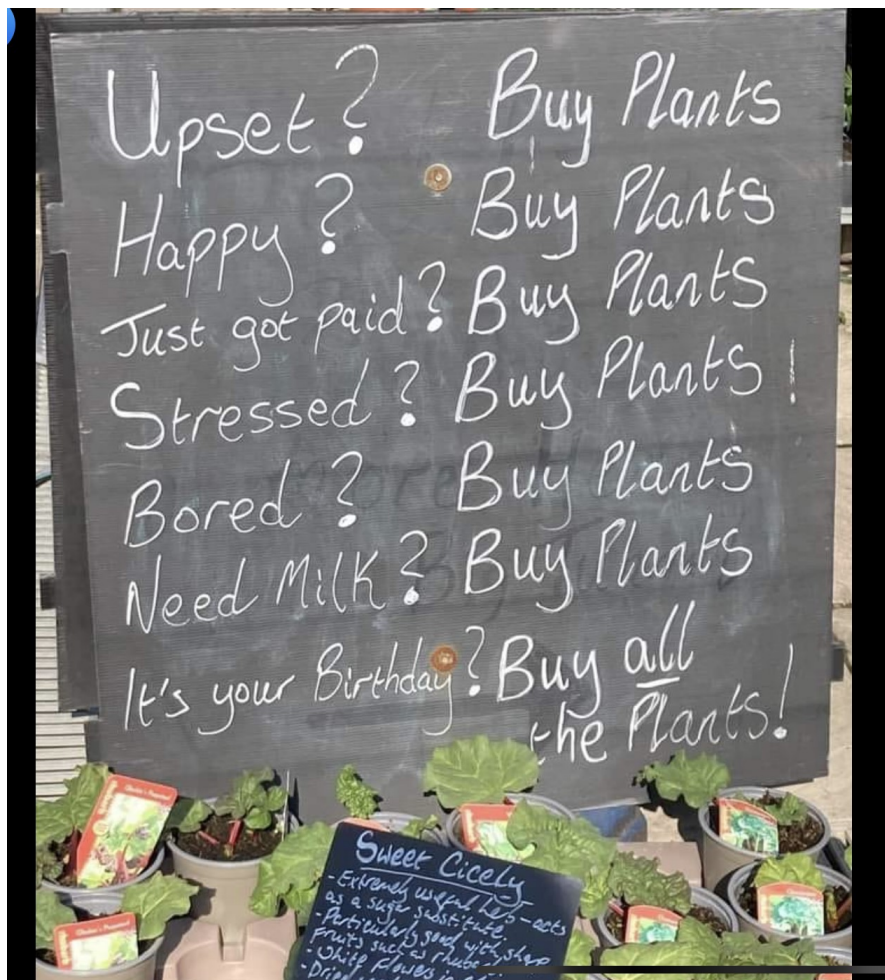 Upset? Buy Plants
Happy? Buy Plants
Just got paid? Buy Plants
Stressed? Buy Plants!
Bored? Buy Plants
Need Milk? Buy Plants
It's your Birthday? Buy all
the Plants!
Sweet Cicely
- Extremely useful herb - acts
as a sugar substitute.
- Particularly good with sharp
fruits such as rhubarb
- White flowers in
- Dried